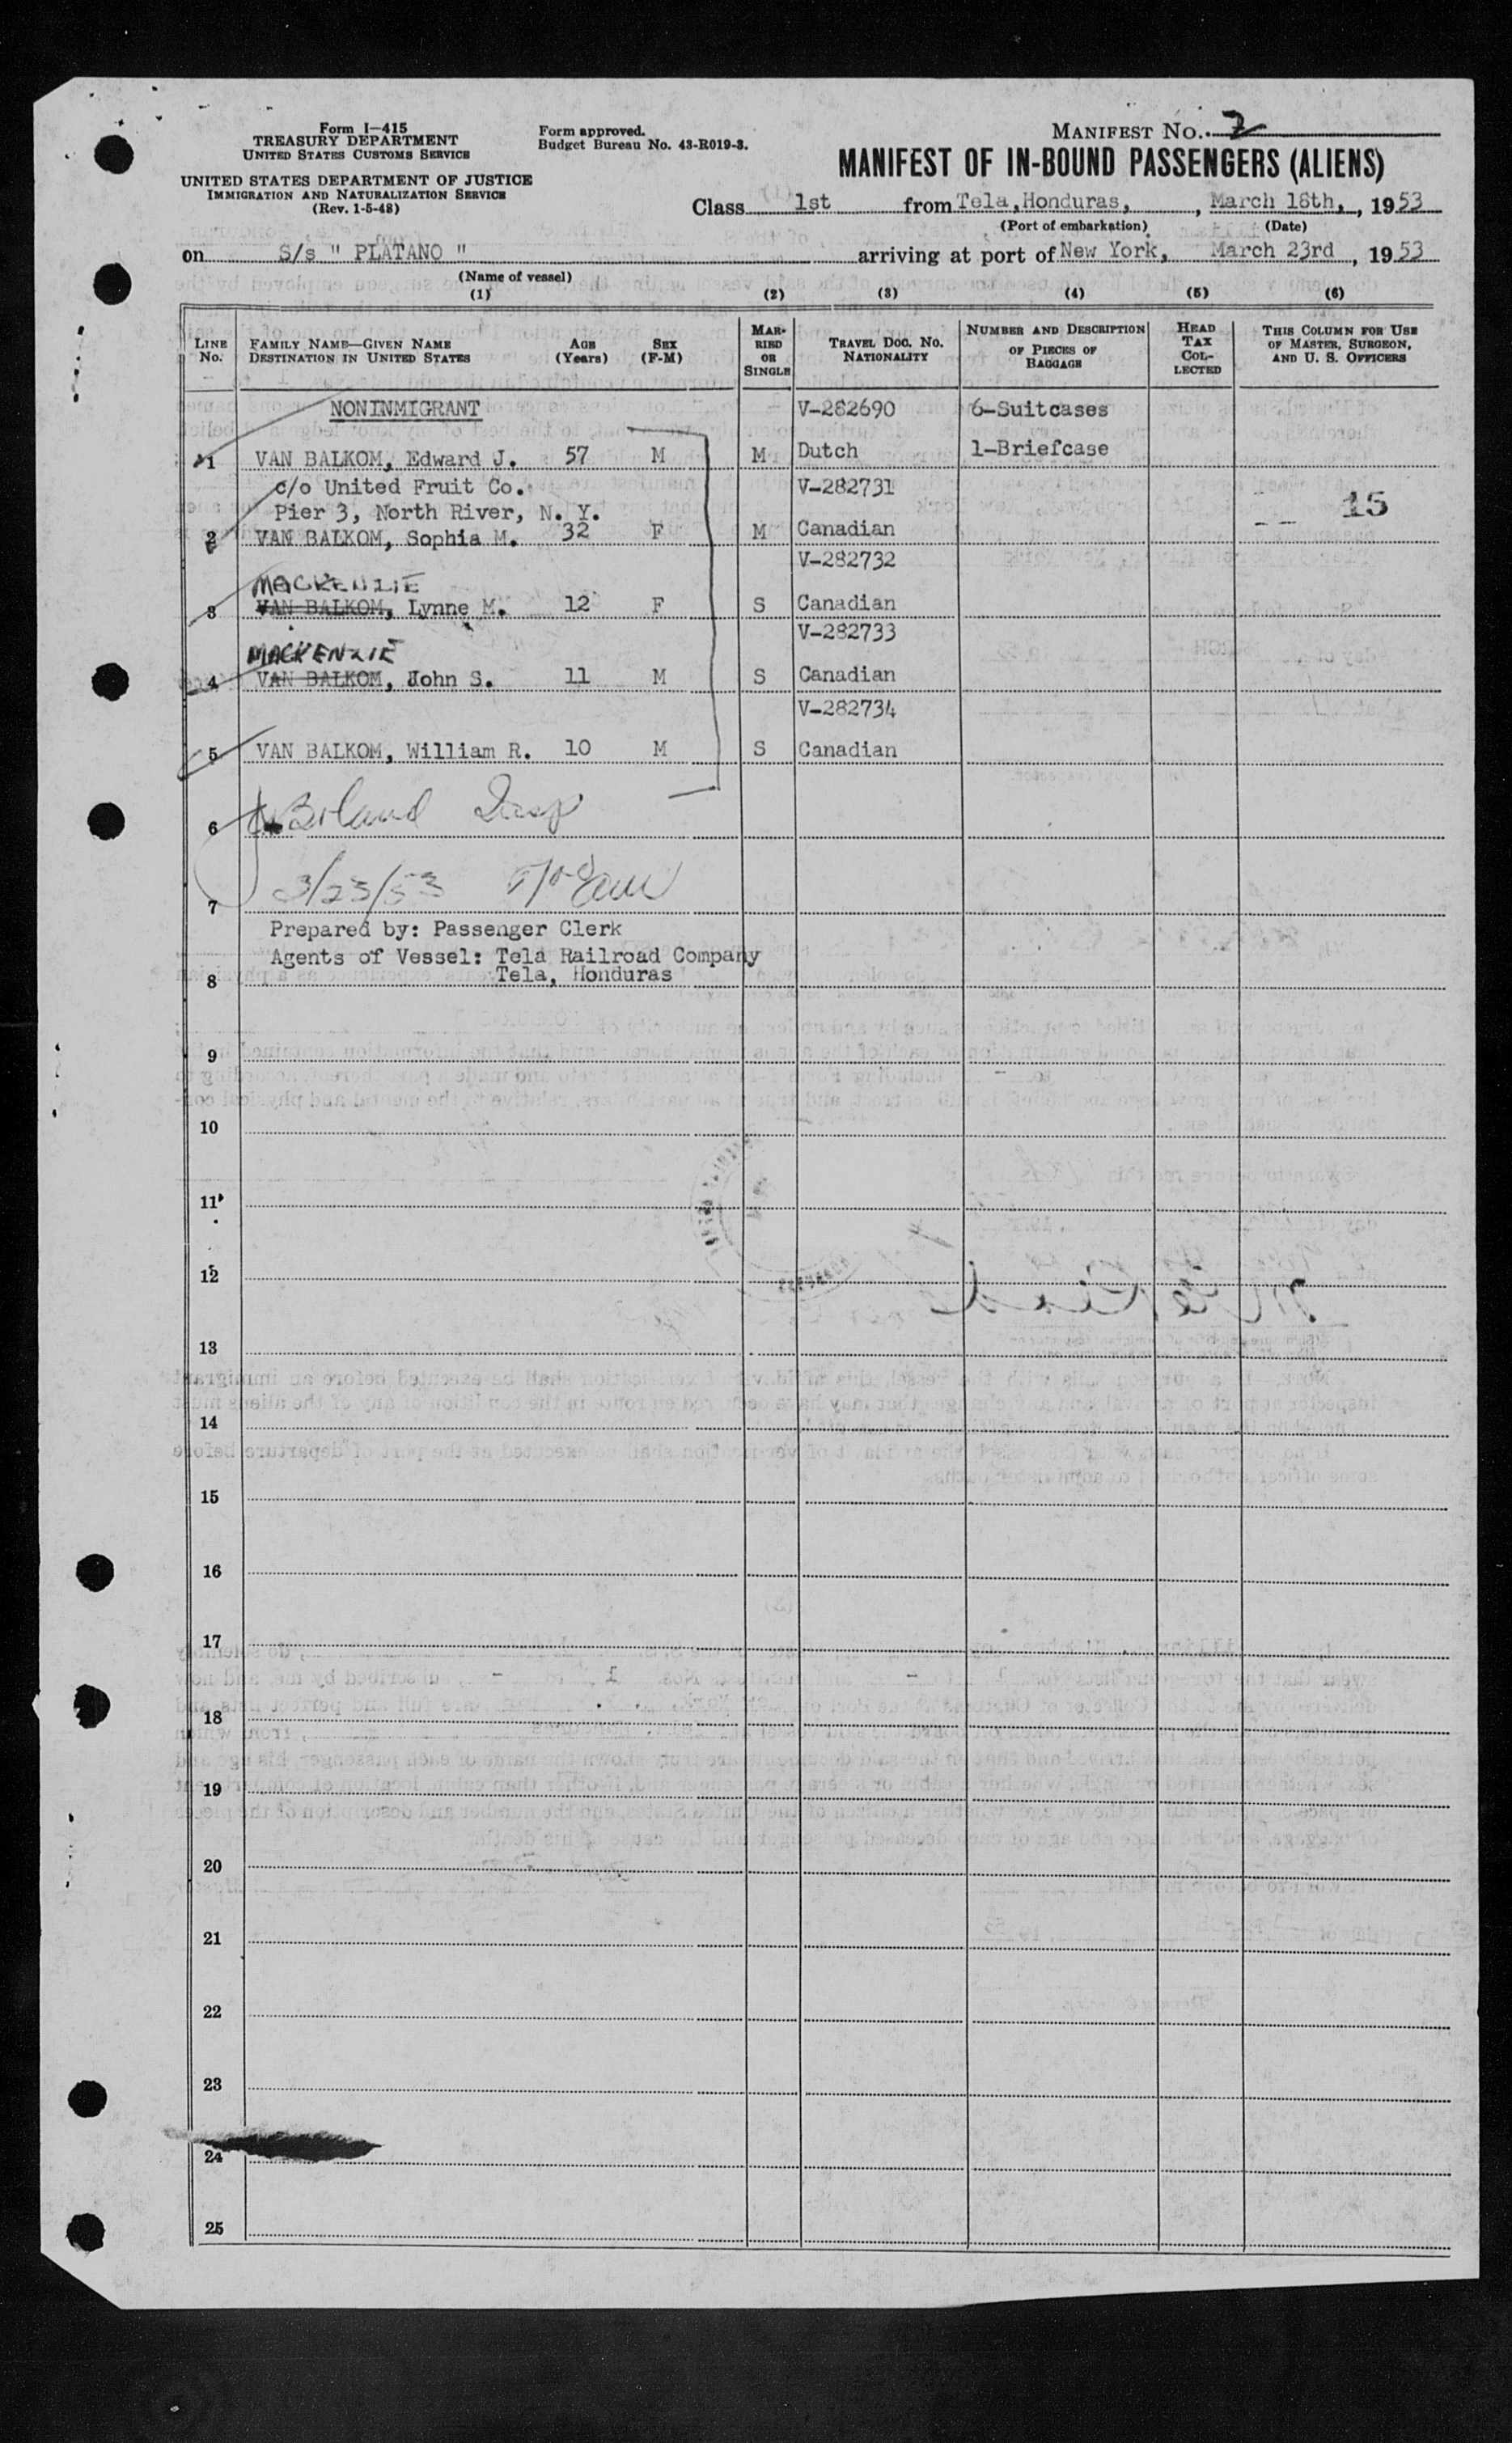 Form I-415
TREASURY DEPARTMENT
UNITED STATES CUSTOMS SERVICE
UNITED STATES DEPARTMENT OF JUSTICE
IMMIGRATION AND NATURALIZATION SERVICE
(Rev. 1-5-48)
Form approved.
Budget Bureau No. 43-R019-3.
MANIFEST No. 2
MANIFEST OF IN-BOUND PASSENGERS (ALIENS)
Class 1st from Tela, Honduras, , March 18th, , 1953
(Port of embarkation) (Date)
on S/s " PLATANO " arriving at port of New York, March 23rd , 1953
(Name of vessel)
(1) (2) (3) (4) (5) (6)
LINE No. FAMILY NAME—GIVEN NAME DESTINATION IN UNITED STATES AGE (Years) SEX (F-M) MARRIED OR SINGLE TRAVEL DOC. NO. NATIONALITY NUMBER AND DESCRIPTION OF PIECES OF BAGGAGE HEAD TAX COLLECTED THIS COLUMN FOR USE OF MASTER, SURGEON, AND U. S. OFFICERS
NONINMIGRANT V-282690 6-Suitcases
1 VAN BALKOM, Edward J. 57 M M Dutch 1-Briefcase
c/o United Fruit Co. V-282731
Pier 3, North River, N. Y. 15
2 VAN BALKOM, Sophia M. 32 F M Canadian
V-282732
MACKENZIE
3 VAN BALKOM, Lynne M. 12 F S Canadian
V-282733
MACKENZIE
4 VAN BALKOM, John S. 11 M S Canadian
V-282734
5 VAN BALKOM, William R. 10 M S Canadian
6
3/23/53
7
Prepared by: Passenger Clerk
Agents of Vessel: Tela Railroad Company
8 Tela, Honduras
9
10
11
12
13
14
15
16
17
18
19
20
21
22
23
24
25